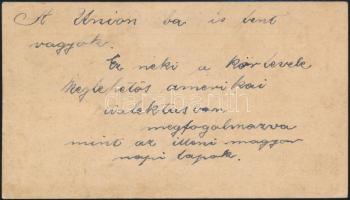 A Union ba is bent
vagyok.
Ez neki a körlevele
Meglehetős amerikai
dialektusban
megfogalmazva
mint az illeni magyar
napi lapok.